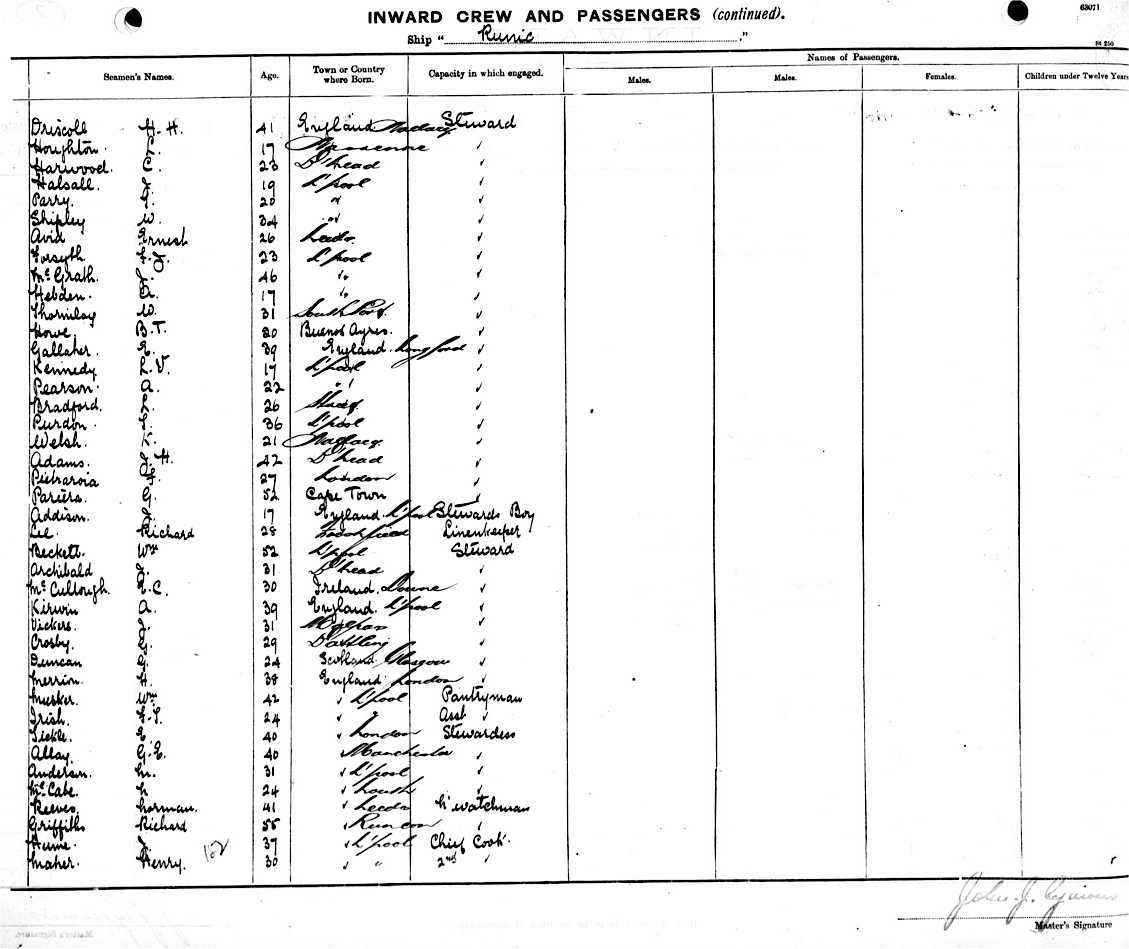 INWARD CREW AND PASSENGERS (continued).
63071
Ship "Runic"
Seamen's Names. Age. Town or Country where Born. Capacity in which engaged. Names of Passengers.
Males. Males. Females. Children under Twelve Years
Driscoll H. H. 41 England Steward
Houghton. 17 ✓
Harwood. C. 23 B'head ✓
Halsall. 19 L'pool ✓
Parry. 20 " ✓
Shipley W. 34 " ✓
Avid Ernest 26 Leeds. ✓
Forsyth 23 L'pool ✓
McGrath. J. 46 " ✓
Hebden. A. 17 " ✓
Thornley W. 31 South Port. ✓
Howe B.T. 20 Buenos Ayres. ✓
Gallaher. 39 England. Longford ✓
Kennedy L.V. 17 L'pool ✓
Pearson. A. 22 " ✓
Bradford. 26 ✓
Purdon. 36 L'pool ✓
Welsh. 21 ✓
Adams. J.H. 42 B'head ✓
Pietraroia 27 London ✓
G. 52 Cape Town ✓
Addison. 17 England. L'pool Stewards Boy
Lee Richard 28 Linenkeeper
Beckett. Wm 52 L'pool Steward
Archibald 31 B'head ✓
McCullough. C. 30 Ireland. ✓
Kirwin A. 39 England. L'pool ✓
Vickers. 31 ✓
Crosby. 29 ✓
Duncan G. 24 Scotland Glasgow ✓
Merrion. H. 38 England London ✓
Musker. Wm 42 ✓ L'pool Pantryman
Irish. 24 ✓ " Asst ✓
Tickle. 40 ✓ London Stewardess
Allay. G.E. 40 Manchester ✓
Anderson. M. 31 ✓ L'pool ✓
McCabe. 24 ✓ Louth ✓
Reeves Norman. 41 ✓ Leeds N'watchman
Griffiths Richard 55 ✓ Runcorn ✓
Hume. J. 37 ✓ L'pool Chief Cook.
Maher Henry. 30 ✓ " 2nd ✓
John J.
Master's Signature